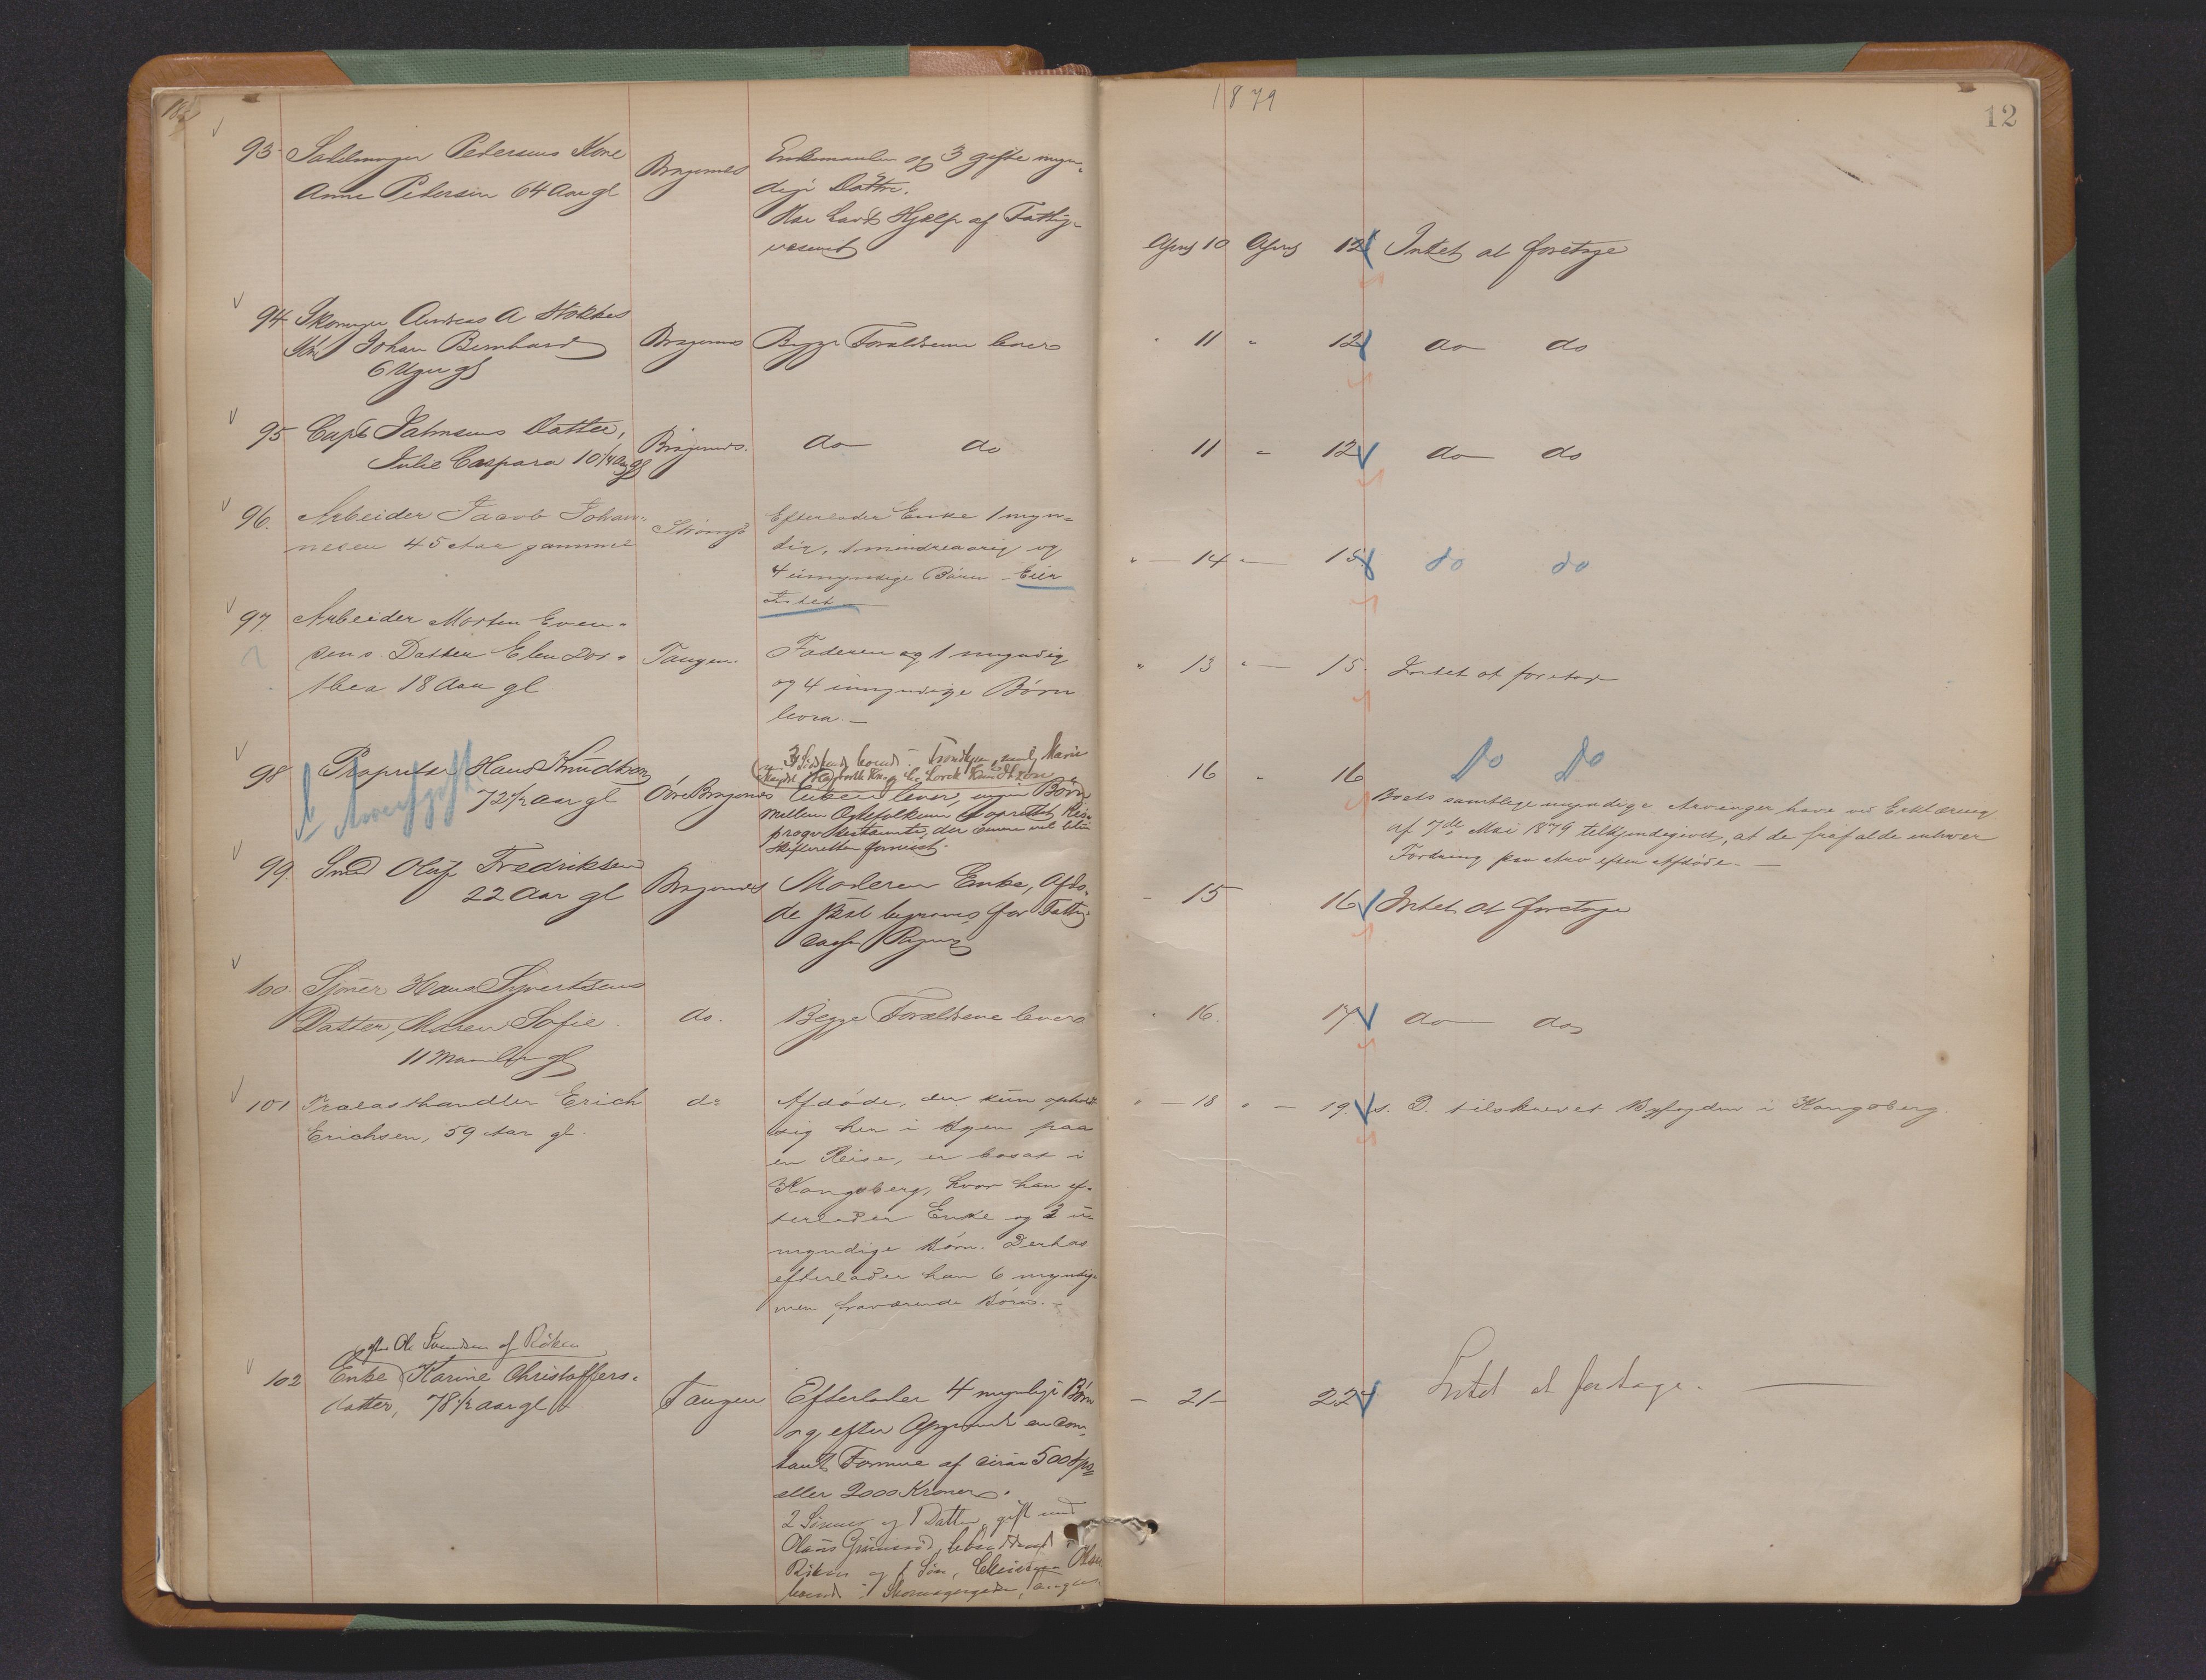 1879
12
93 Sadelmager Petersens Kone
Anne Petersen 64 Aar gl
Bragernes
Enkemanden og 3 gifte myn-
dige Døttre.
Har havt Hjælp af Fattig-
væsenet
April 10 April 12 Intet at foretage
94 Skomager Andreas A Stokkes
Johan Bernhard
6 Uger gl
Bragernes
Begge Forældrene lever
11 " 12 do do
95 Capt Datter,
Julie Caspara 10 1/4 Aar gl
Bragernes.
do do
11 " 12 do do
96. Arbeider Jacob Johan-
nesen 45 Aar gammel
Strømsø
Efterlader Enke 1 myn-
dig, 1 mindreaarig og
4 umyndige Børn Eier
Intet
" 14 " 15 do do
97. Arbeider Morten Even-
sens Datter Elen Dor-
thea 18 Aar gl
Tangen.
Faderen og 1 myndig
og 4 umyndige Børn
leve. —
" 13 " — 15. Intet at foretage
98 Proprietær Hans Knudtzon
72 1/2 Aar gl
Arveafgift
Øvre Bragernes
Marie
Enken lever, ingen Børn
Mellem Ægtefolkene er oprettet Reci-
proqv Testamente, der
Skifteretten
16 " 16 Do Do
Boets samtlige myndige Arvinger have ved Erklæring
af 7de Mai 1879 tilkjendegivet, at de frafalde enhver
Fordring paa Arv efter Afdøde. —
99 Smed Oluf Fredriksen
22 Aar gl
Bragernes
Moderen Enke, Afdø-
de skal begraves for Fattig-
cassens Regning
- 15 16 Intet at foretage
100. Sjømd Hans Syvertsens
Datter, Maren Sofie.
11 Maaneder gl
do.
Begge Forældrene lever
" 16. 17 do do
101 Trælasthandler Erich
Erichsen, 59 Aar gl.
do
Afdøde, der kun opholdt
sig her i Byen paa
en Reise, er bosat i
Kongsberg, hvor han ef-
terlader Enke og 2 u-
myndige Børn. Derhos
efterlader han 6 myndige
men fraværende Børn. —
" — 18 " — 19. s. D. tilskrevet Byfogden i Kongsberg.
efter Ole Svendsen af Røken
102 Enke Karine Christoffers-
datter, 78 1/2 Aar gl
Tangen
Efterlader 4 myndige Børn
og efter Opgivende en con-
tant Formue af circa 500 Spd
eller 2000 Kroner.
2 Sønner og 1 Datter, gift med
Olaus
Røken og 1 Søn, Olsen
boende i Skomagergaden, Tangen
— 21 — 22 Intet at foretage. —